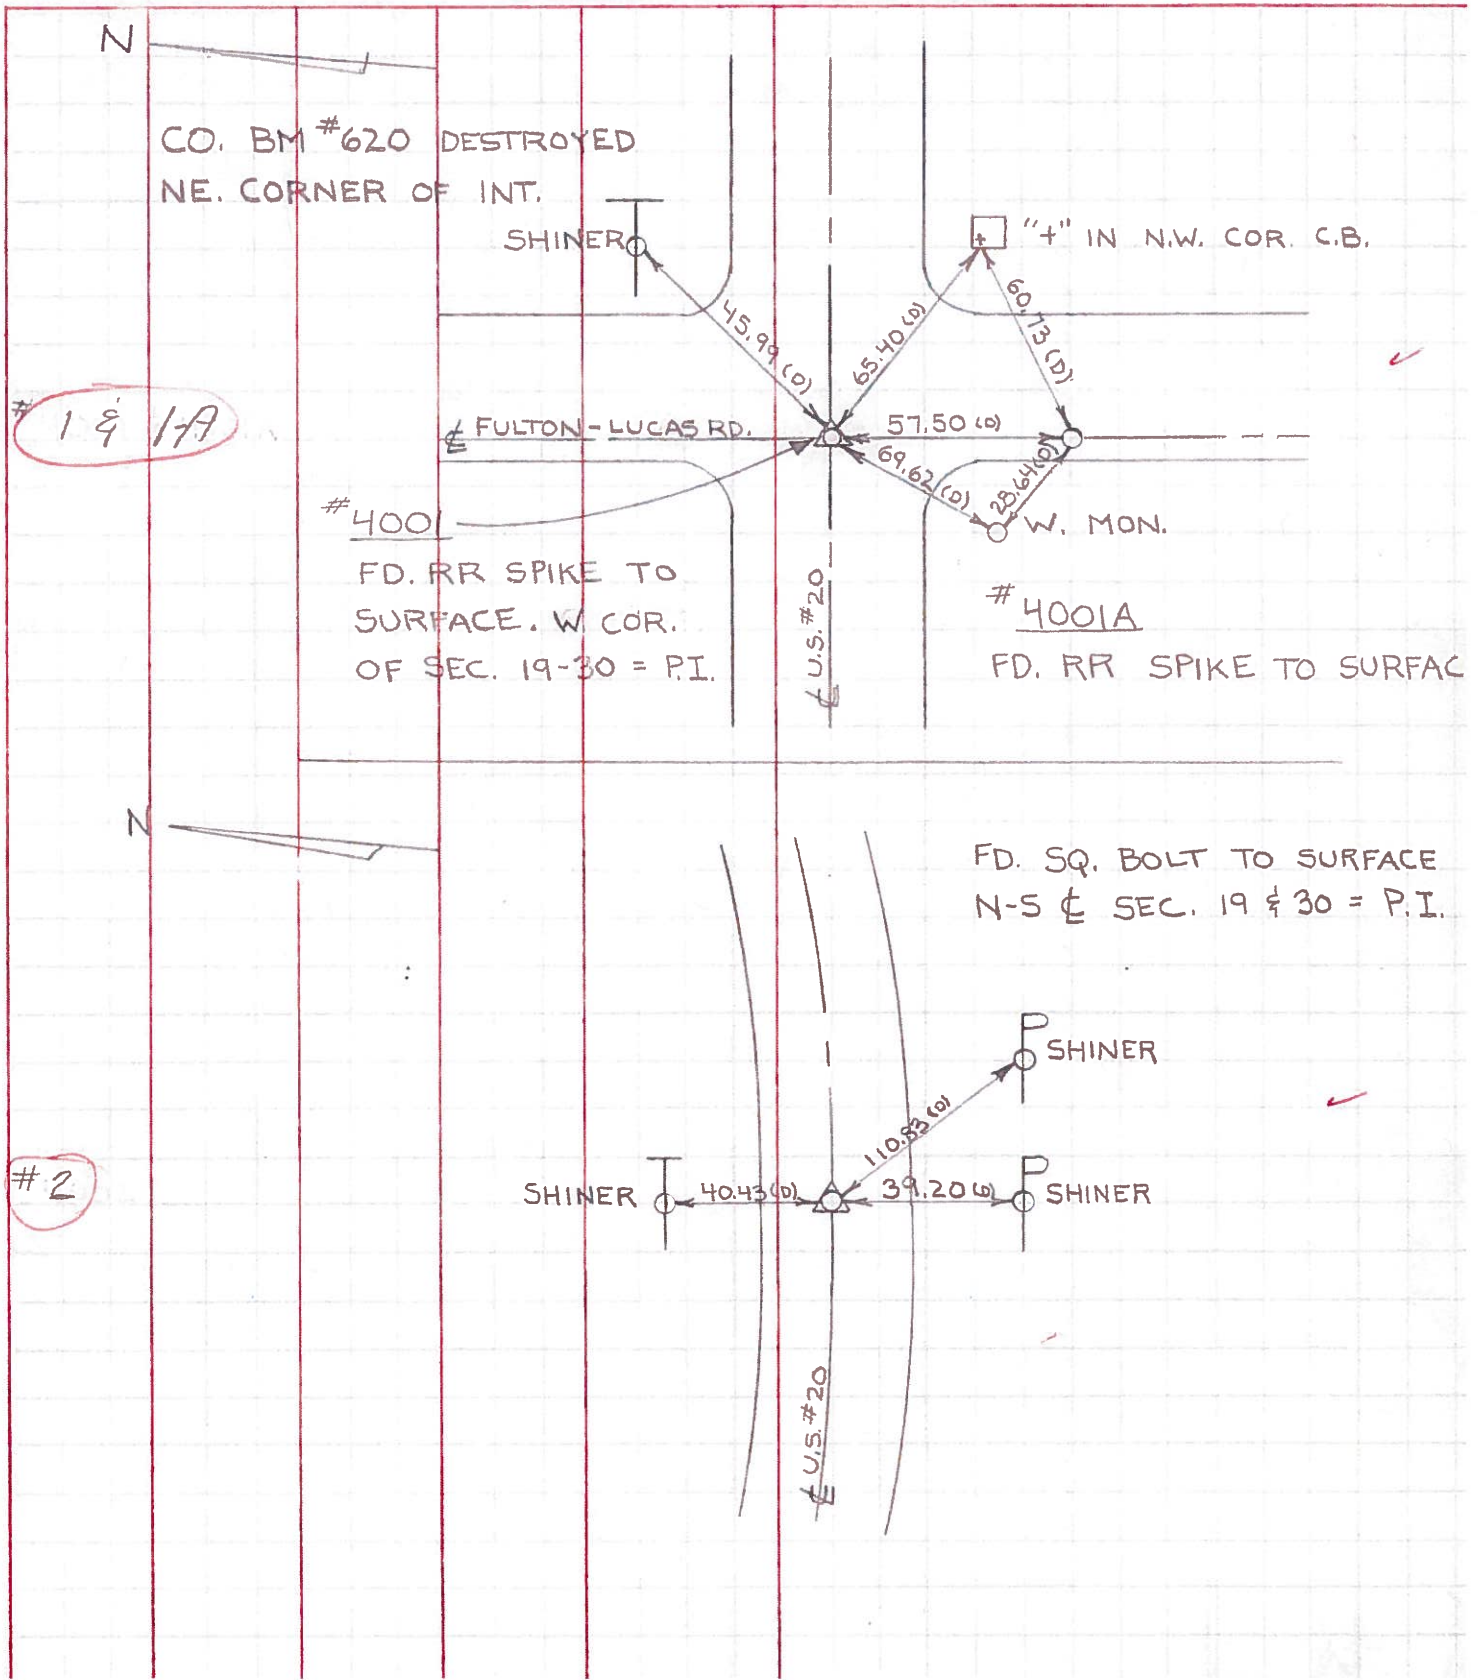 N
CO. BM #620 DESTROYED
NE. CORNER OF INT.
SHINER
"+" IN N.W. COR. C.B.
45.99 (D)
65.40 (D)
60.73 (D)
# 1 & 1-A
℄ FULTON-LUCAS RD.
57.50 (D)
69.62 (D)
28.64 (D)
W. MON.
#4001
FD. RR SPIKE TO
SURFACE. W COR.
OF SEC. 19-30 = P.I.
℄ U.S. #20
# 4001A
FD. RR SPIKE TO SURFAC
N
FD. SQ. BOLT TO SURFACE
N-S ℄ SEC. 19 & 30 = P.I.
SHINER
110.83 (D)
#2
SHINER
40.43 (D)
39.20 (D)
SHINER
℄ U.S. #20